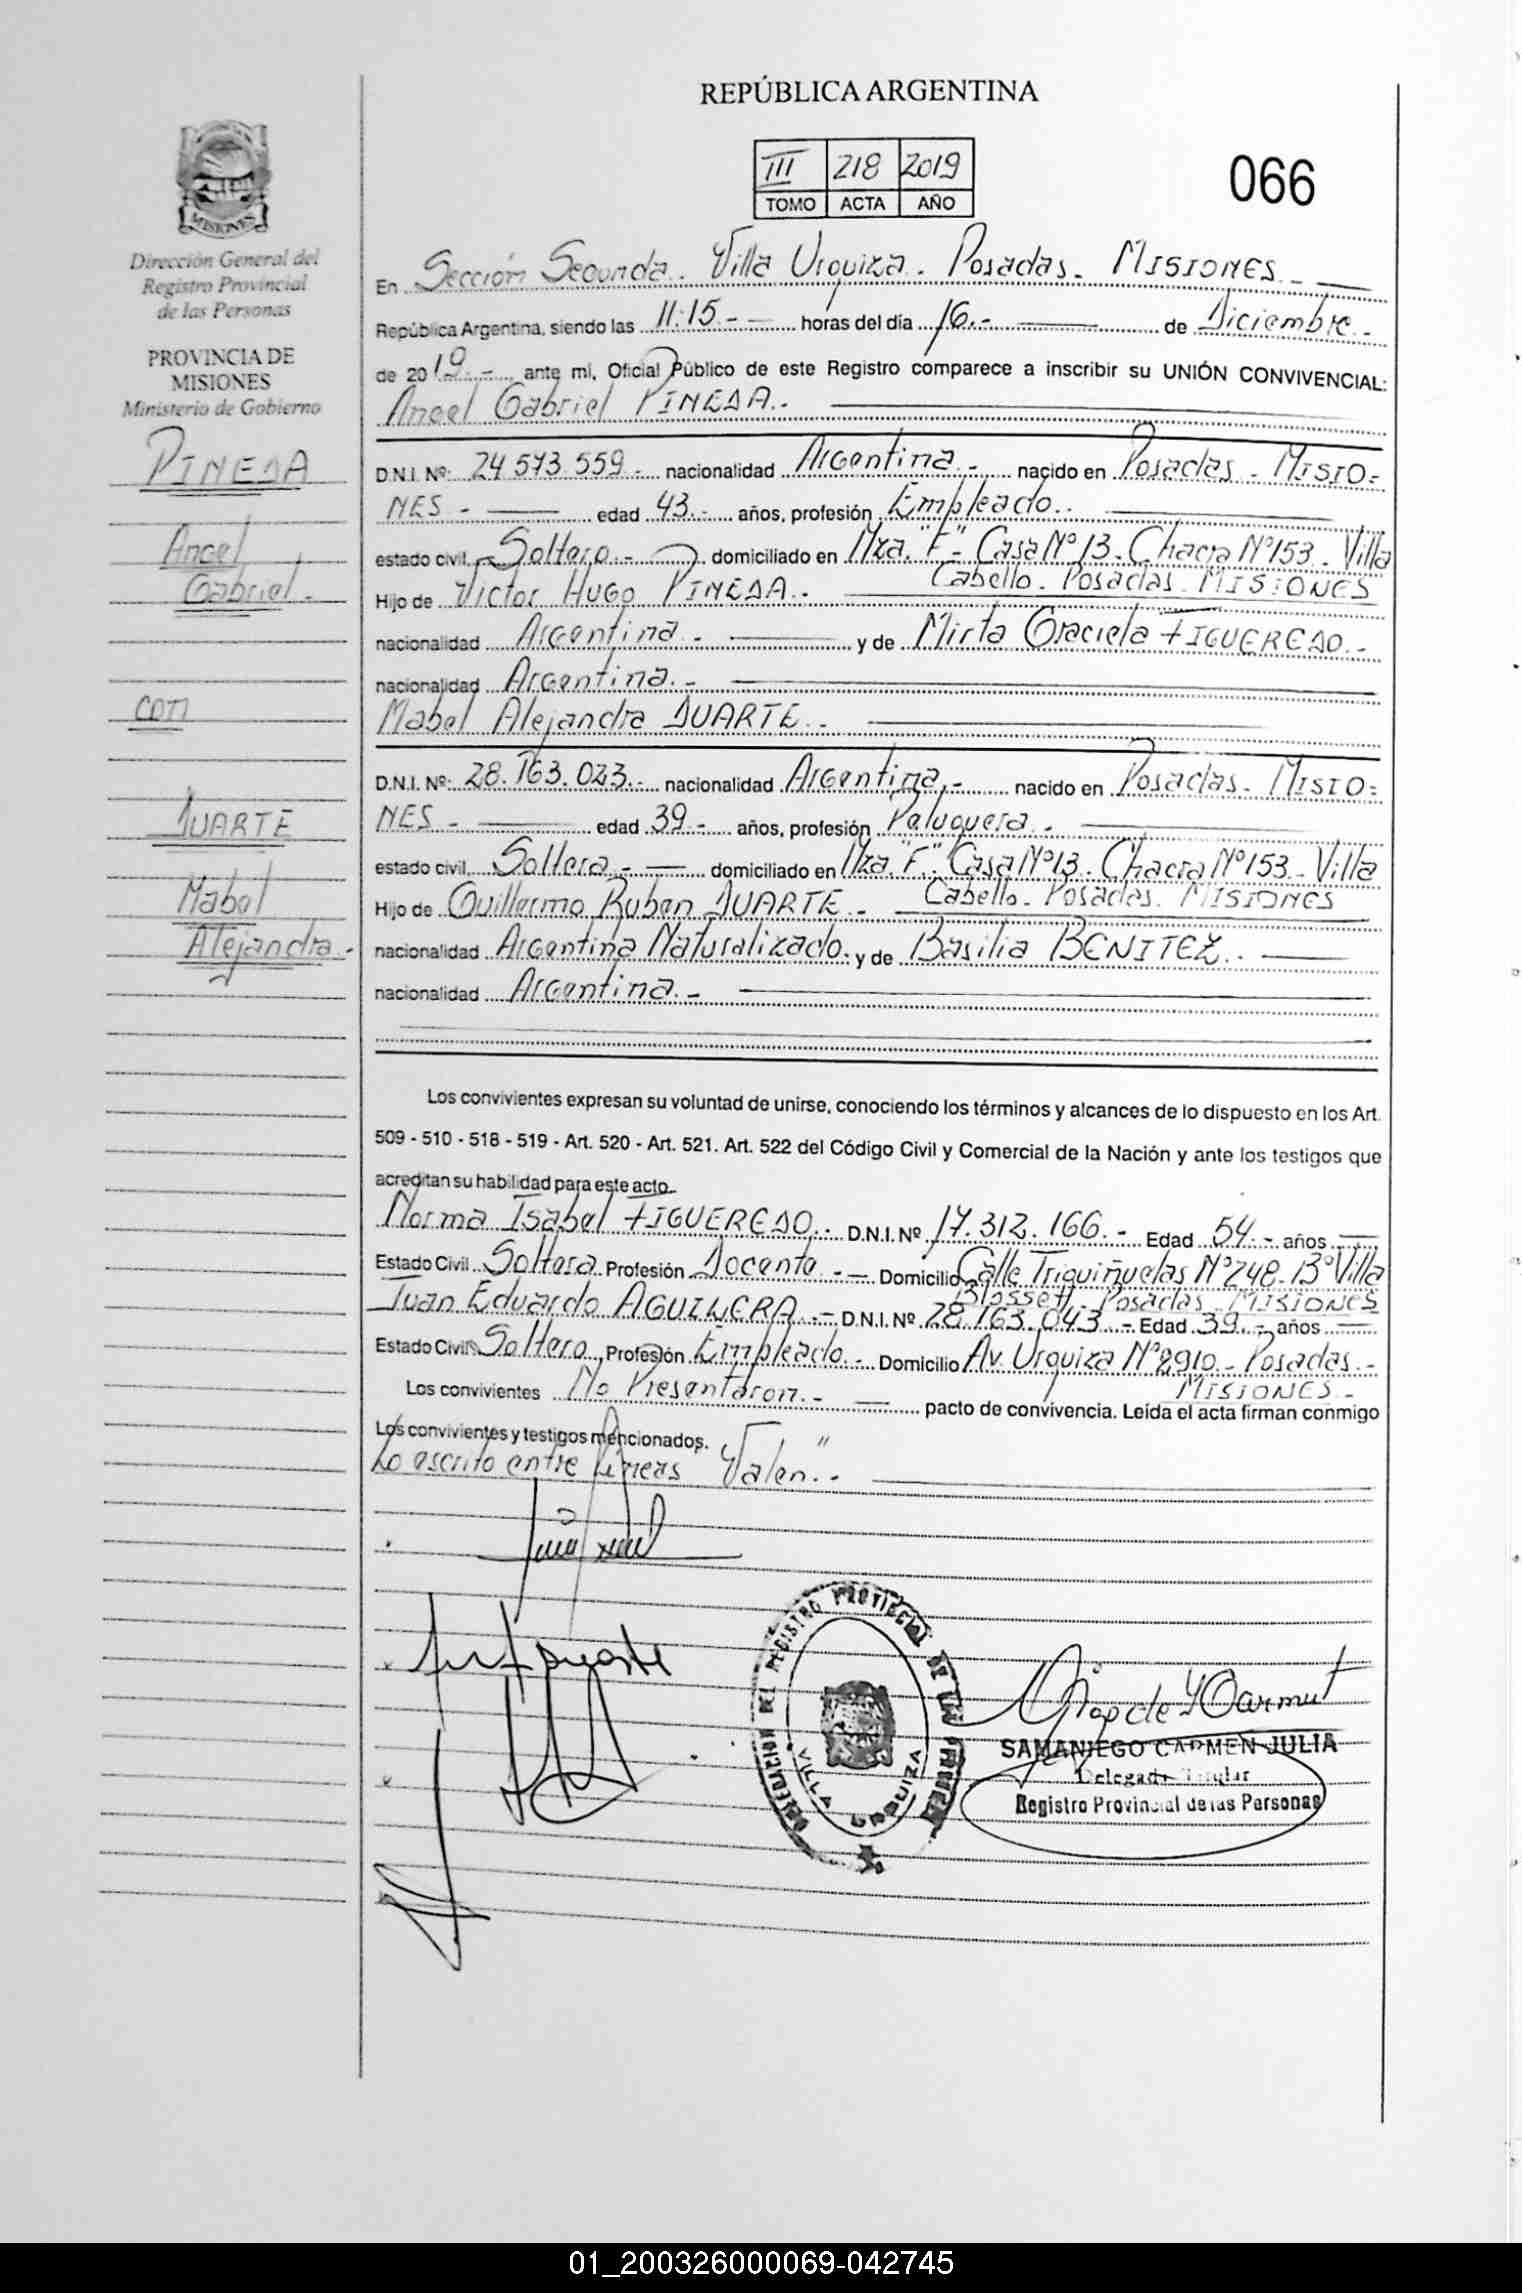 REPÚBLICA ARGENTINA
III 218 2019
TOMO ACTA AÑO
066
MISIONES
Dirección General del
Registro Provincial
de las Personas
PROVINCIA DE
MISIONES
Ministerio de Gobierno
PINEDA
Angel
Gabriel.-
con
DUARTE
Mabel
Alejandra.-
En Sección Segunda. Villa Urquiza. Posadas. MISIONES.-
República Argentina, siendo las 11:15.- horas del día 16.- de Diciembre.-
de 2019.- ante mi, Oficial Público de este Registro comparece a inscribir su UNIÓN CONVIVENCIAL:
Angel Gabriel PINEDA.-
D.N.I. Nº: 24.573.559.- nacionalidad Argentina.- nacido en Posadas - MISIO=
NES.- edad 43.- años, profesión Empleado.-
estado civil Soltero.- domiciliado en Mza. "F" Casa Nº 13. Chacra Nº 153. Villa
Cabello. Posadas. MISIONES
Hijo de Victor Hugo PINEDA.-
nacionalidad Argentina.- y de Mirta Graciela FIGUEREDO.-
nacionalidad Argentina.-
Mabel Alejandra DUARTE.-
D.N.I. Nº: 28.163.023.- nacionalidad Argentina.- nacido en Posadas. MISIO=
NES.- edad 39.- años, profesión Peluquera.-
estado civil Soltera.- domiciliado en Mza. "F" Casa Nº 13. Chacra Nº 153. Villa
Cabello. Posadas. MISIONES
Hijo de Guillermo Ruben DUARTE.-
nacionalidad Argentina Naturalizado. y de Basilia BENITEZ.-
nacionalidad Argentina.-
Los convivientes expresan su voluntad de unirse, conociendo los términos y alcances de lo dispuesto en los Art.
509 - 510 - 518 - 519 - Art. 520 - Art. 521. Art. 522 del Código Civil y Comercial de la Nación y ante los testigos que
acreditan su habilidad para este acto.
Norma Isabel FIGUEREDO.- D.N.I. Nº 17.312.166.- Edad 54.- años
Estado Civil Soltera Profesión Docente.- Domicilio Calle Triquiñuelas Nº 248. Bº Villa
Blosset. Posadas. MISIONES
Juan Eduardo AGUILERA.- D.N.I. Nº 28.163.043.- Edad 39.- años
Estado Civil Soltero Profesión Empleado.- Domicilio Av. Urquiza Nº 2910.- Posadas.-
MISIONES.-
Los convivientes No Presentaron.- pacto de convivencia. Leída el acta firman conmigo
Los convivientes y testigos mencionados.
Lo escrito entre líneas "Valen".-
DELEGACION DEL REGISTRO PROVINCIAL DE LAS PERSONAS
VILLA URQUIZA
SAMANIEGO CARMEN JULIA
Delegada Titular
Registro Provincial de las Personas
01_200326000069-042745